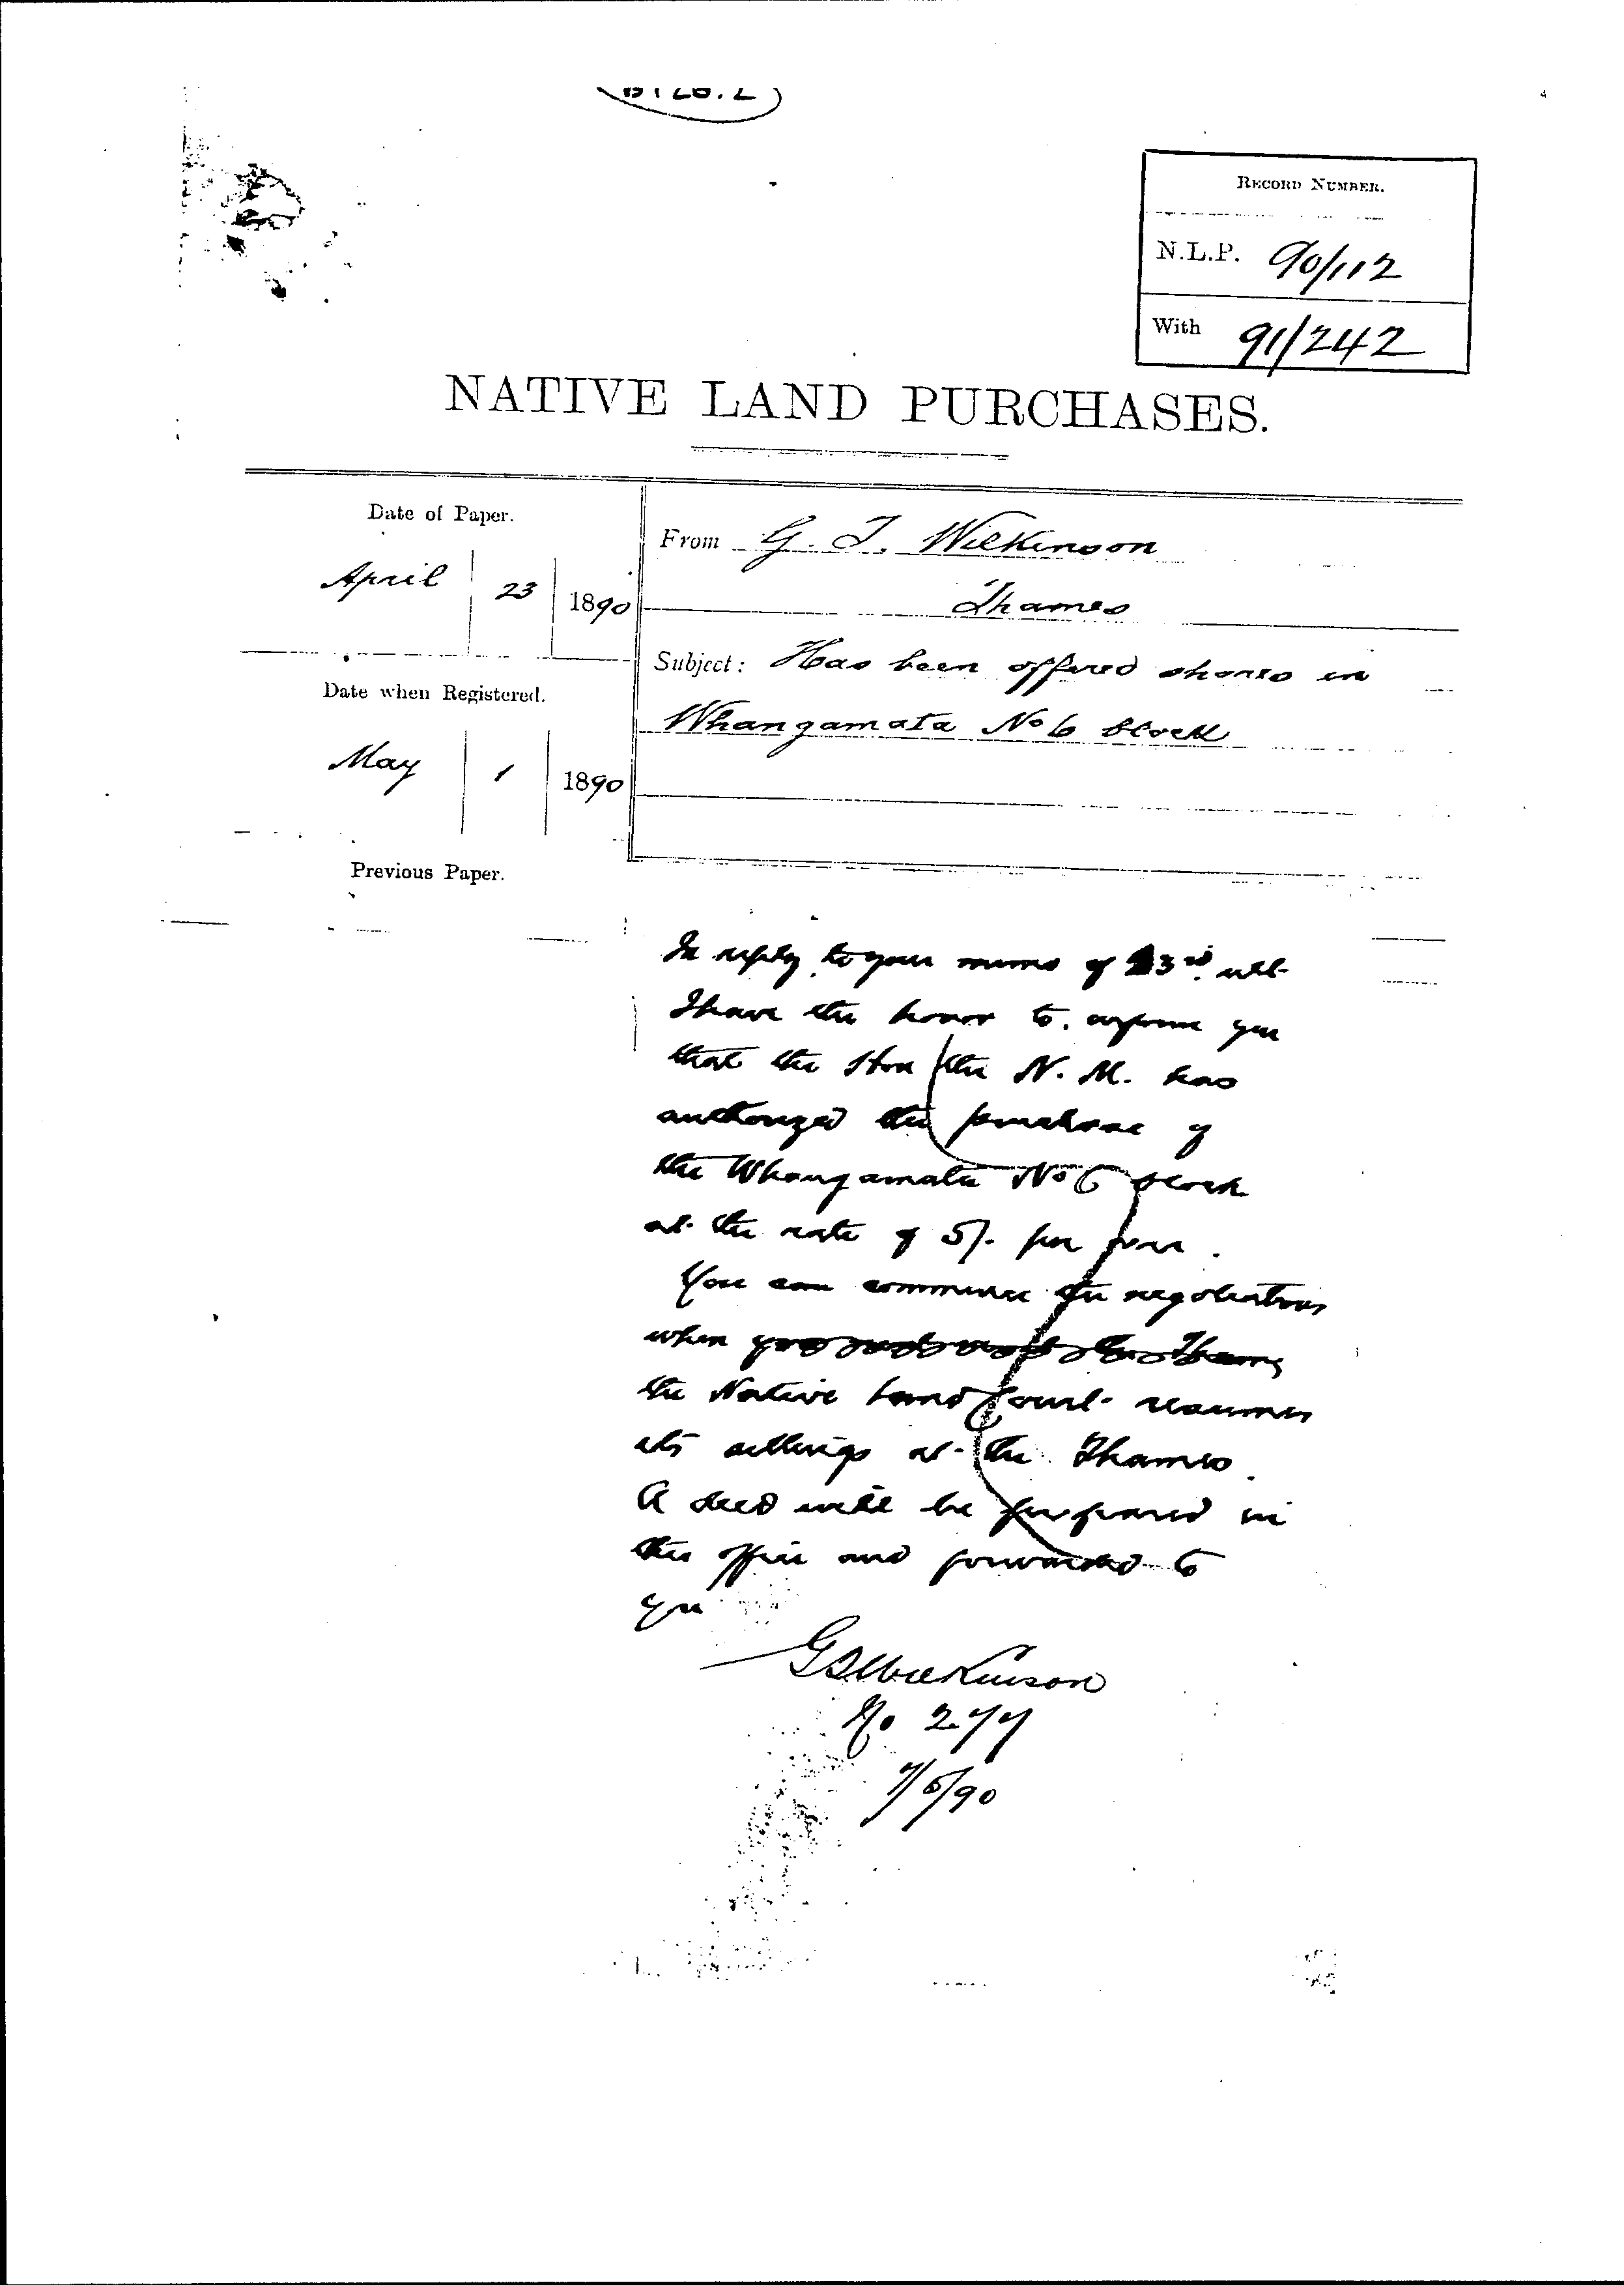 RECORD NUMBER.
N.L.P. 90/112
With 91/242
NATIVE LAND PURCHASES.
Date of Paper.
April 23 1890
From G. T. Wilkinson
Thames
Subject: Has been offered shares in
Whangamata No 6 block
Date when Registered.
May 1 1890
Previous Paper.
In reply to your memo of 23rd ult
I have the honor to inform you
that the Hon the N. M. has
authorized the purchase of
the Whangamata No 6 block
at the rate of 5/- per acre.
You can commence the negotiations
when
the Native Land Court resumes
its sittings at the Thames.
A deed will be prepared in
this office and forwarded to
you
GTWilkinson
No 277
7/5/90